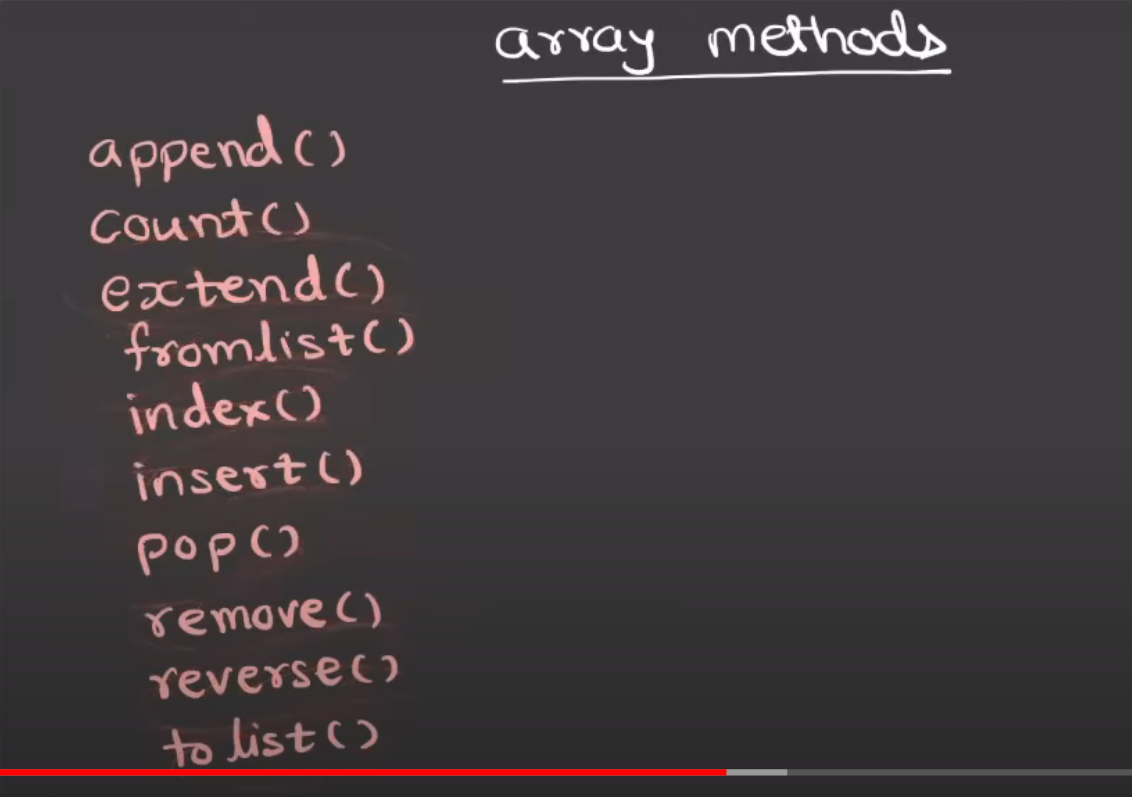 array methods
append()
count()
extend()
fromlist()
index()
insert()
pop()
remove()
reverse()
to list()